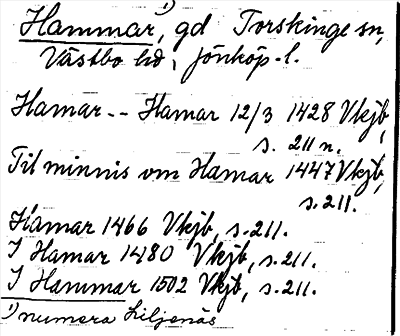 Hammar, 1) gd Torskinge sn,
Västbo hd, Jönköp. l.
Hamar -- Hamar 12/3 1428 Vkjb,
s. 211 n.
Til minnis om Hamar 1447 Vkjb,
s. 211.
Hamar 1466 Vkjb, s. 211.
I Hamar 1480 Vkjb, s. 211.
I Hammar 1502 Vkjb, s. 211.
1) numera Liljenäs